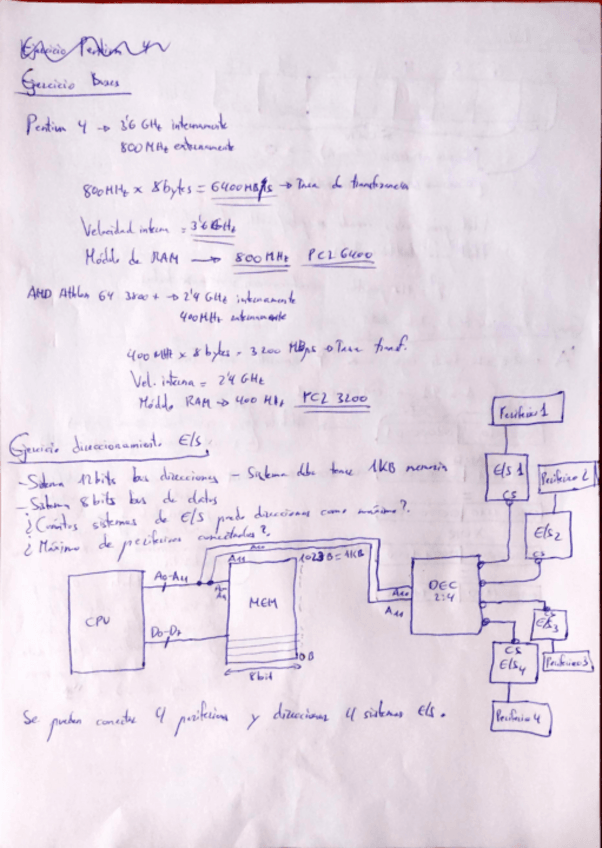 Ejercicio Pentium 4
Ejercicio Buses
Pentium 4 → 3'6 GHz internamente
800 MHz externamente
800MHz x 8bytes = 6400MB/s → Tasa de transferencia
Velocidad interna = 3'6GHz
Módulo de RAM → 800 MHz PC2 6400
AMD Athlon 64 3800+ → 2'4 GHz internamente
400MHz externamente
400 MHz x 8 bytes = 3200 MBps → Tasa transf.
Vel. interna = 2'4 GHz
Módulo RAM → 400 MHz PC2 3200
Ejercicio direccionamiento E/S.
- Sistema 12bits bus direcciones - Sistema debe tener 1KB memoria
- Sistema 8bits bus de datos
¿Cuántos sistemas de E/S puede direccionar como máximo?.
¿Máximo de periféricos conectados?.
Periférico 1
E/S 1
CS
Periférico 2
E/S2
CS
A10
A11
1023B = 1KB
CPU
A0-A11
D0-D7
MEM
0B
8bit
A10
A11
DEC
2:4
CS
E/S3
Periférico 3
CS
E/S4
Periférico 4
Se pueden conectar 4 periféricos y direccionar 4 sistemas E/S.